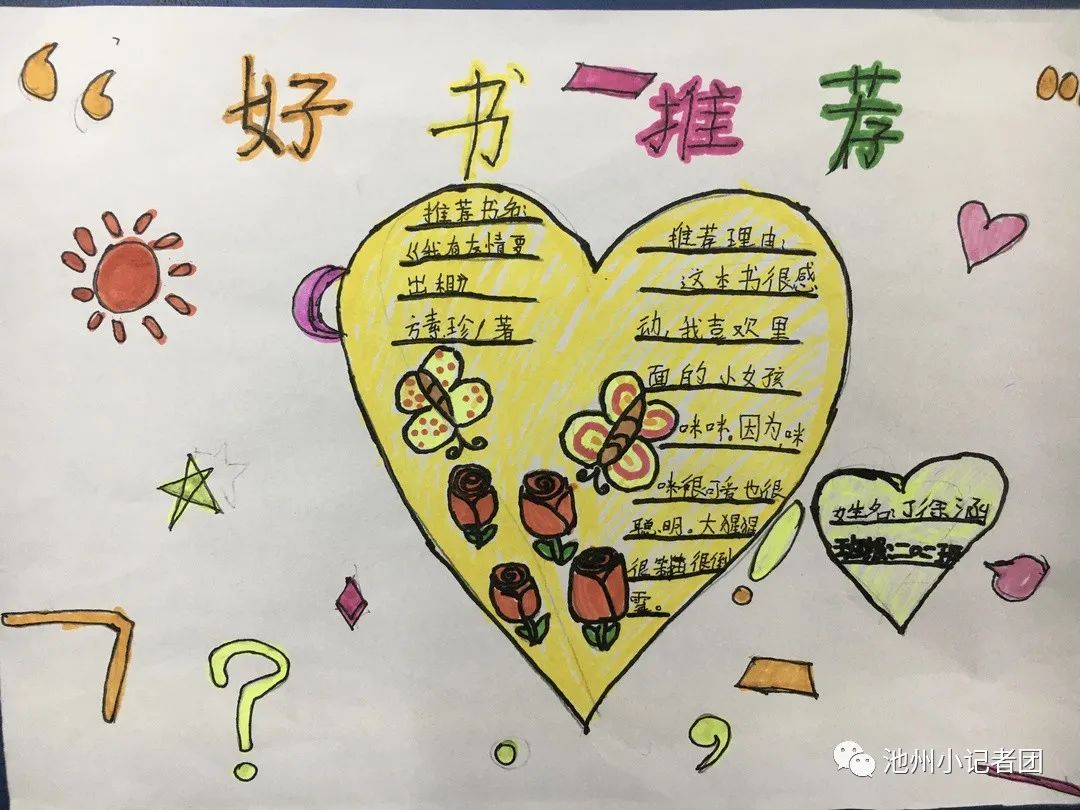 好书推荐
推荐书名:
《我有友情要
出租》
方素珍/著
推荐理由:
这本书很感
动,我喜欢里
面的小女孩
咪咪。因为,咪
咪很可爱也很
聪明。大猩猩
很笨也很倒
霉。
姓名:丁徐涵
班级:二〇二班
池州小记者团